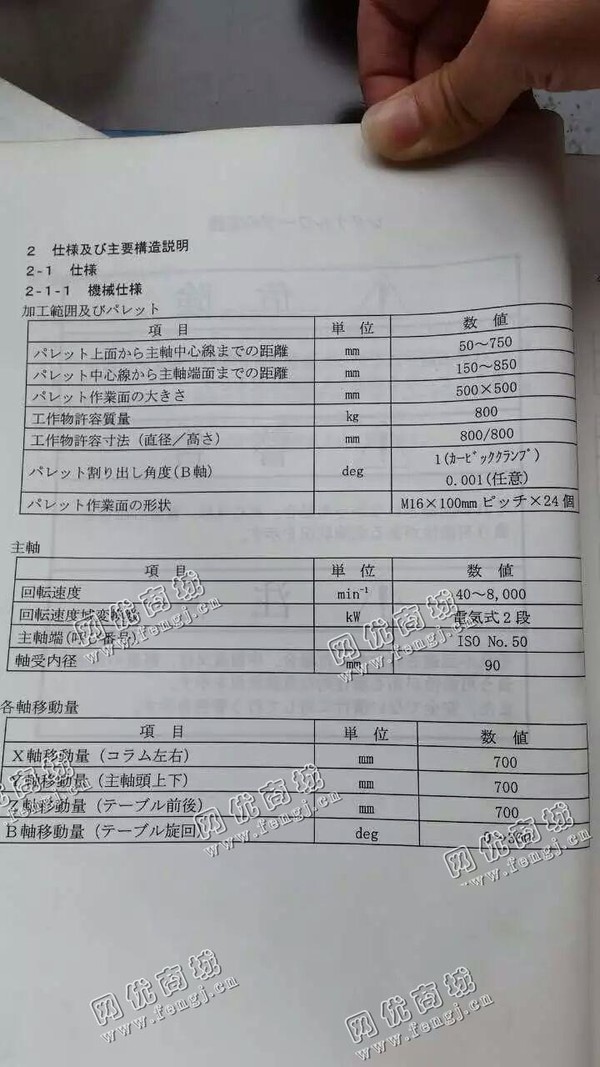 2 仕様及び主要構造説明
2-1 仕様
2-1-1 機械仕様
加工範囲及びパレット
項 目 単 位 数 値
パレット上面から主軸中心線までの距離 mm 50～750
パレット中心線から主軸端面までの距離 mm 150～850
パレット作業面の大きさ mm 500×500
工作物許容質量 kg 800
工作物許容寸法（直径／高さ） mm 800/800
パレット割り出し角度(Ｂ軸) deg 1(ｶｰﾋﾞｯｸｸﾗﾝﾌﾟ)
0.001(任意)
パレット作業面の形状 M16×100mmピッチ×24個
主軸
項 目 単 位 数 値
回転速度 min⁻¹ 40～8,000
回転速度域変換数 kW 電気式２段
主軸端(呼び番号) ISO No.50
軸受内径 mm 90
各軸移動量
項 目 単 位 数 値
Ｘ軸移動量（コラム左右） mm 700
Ｙ軸移動量（主軸頭上下） mm 700
Ｚ軸移動量（テーブル前後） mm 700
Ｂ軸移動量（テーブル旋回） deg
网优商城
www.fengj.cn
网优商城
www.fengj.cn
网优商城
www.fengj.cn
网优商城
www.fengj.cn
网优商城
www.fengj.cn
网优商城
www.fengj.cn
网优商城
www.fengj.cn